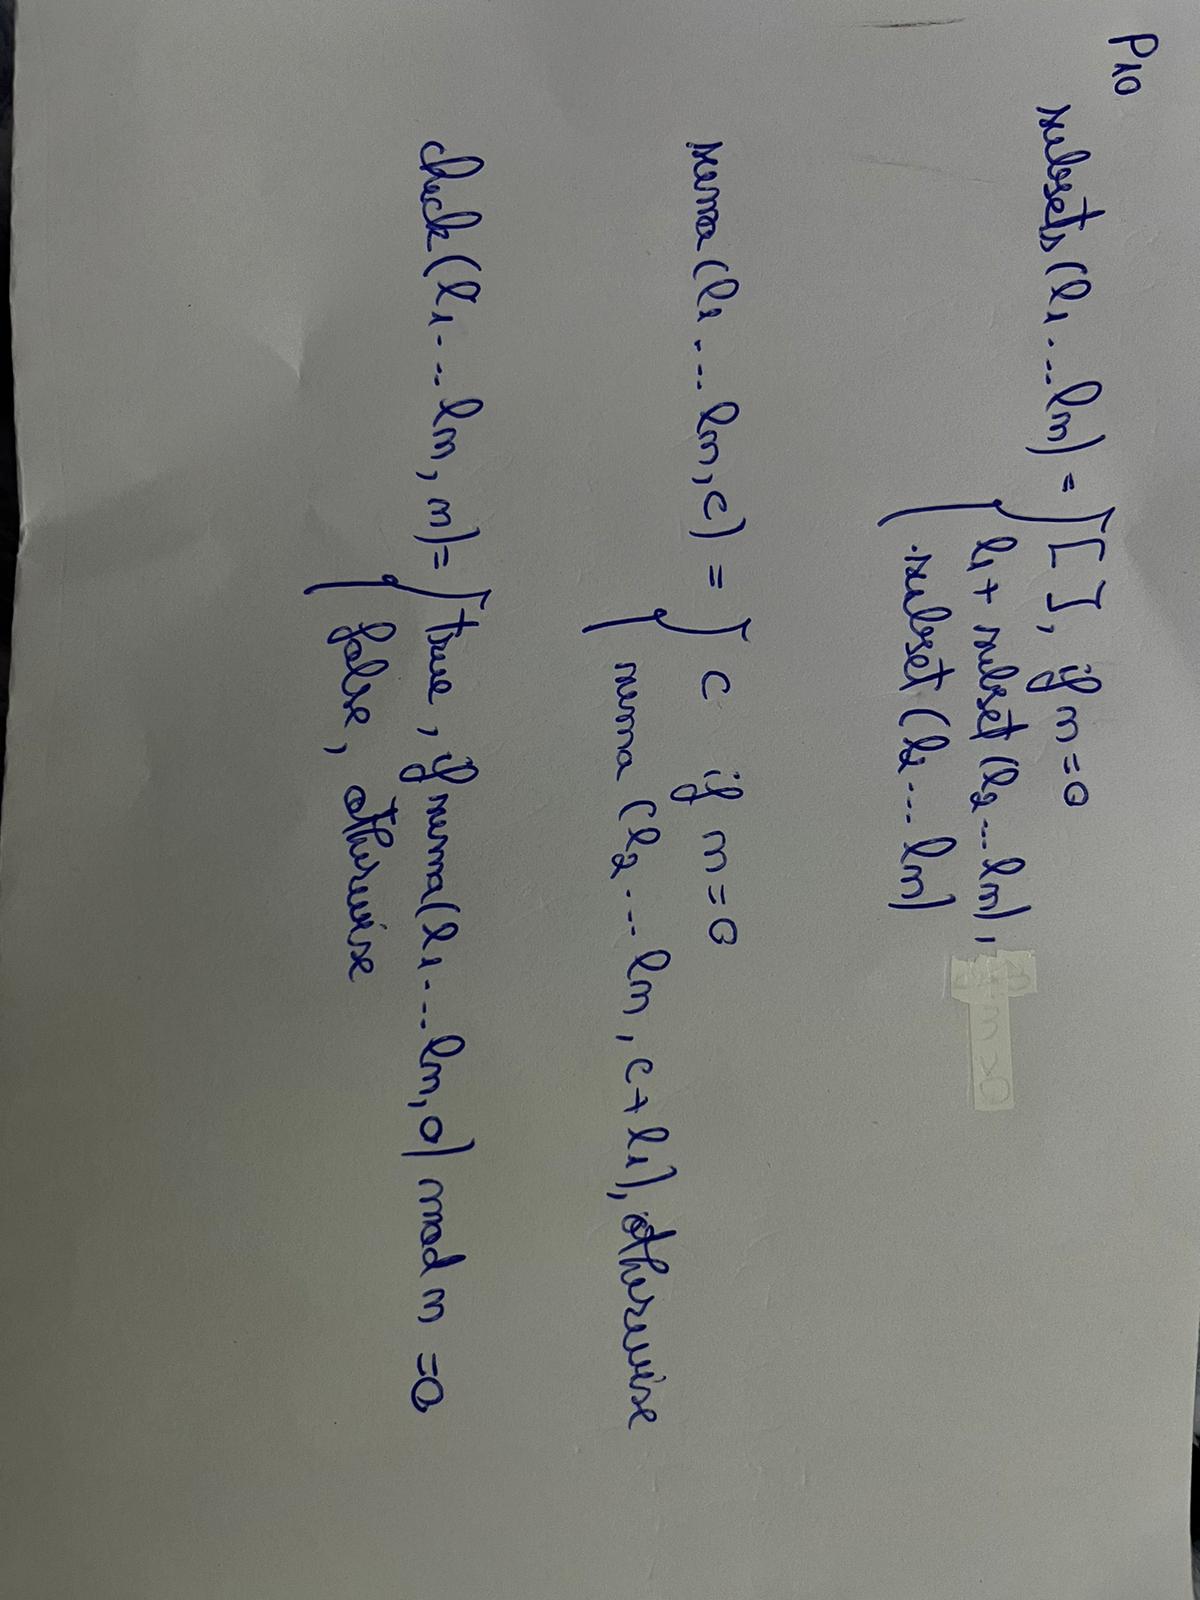 P10
subsets (l1...ln) = { [ ], if n=0
l1 + subset (l2...ln),
subset (l2...ln)
suma (l1...ln, c) = { c if n=0
suma (l2...ln, c+l1), otherwise
check (l1...ln, n) = { true, if suma(l1...ln, 0) mod n =0
false, otherwise